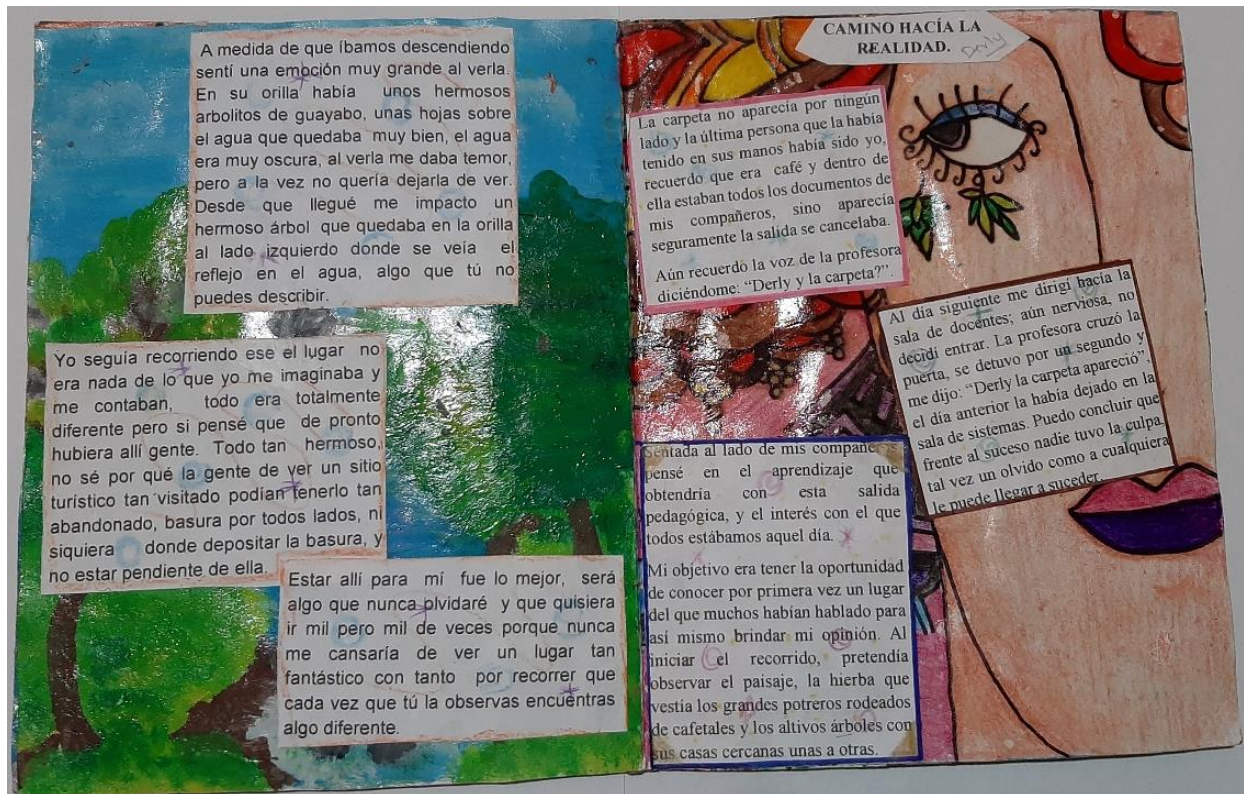 A medida de que íbamos descendiendo
sentí una emoción muy grande al verla.
En su orilla había unos hermosos
arbolitos de guayabo, unas hojas sobre
el agua que quedaba muy bien, el agua
era muy oscura, al verla me daba temor,
pero a la vez no quería dejarla de ver.
Desde que llegué me impacto un
hermoso árbol que quedaba en la orilla
al lado izquierdo donde se veía el
reflejo en el agua, algo que tú no
puedes describir.
Yo seguía recorriendo ese el lugar no
era nada de lo que yo me imaginaba y
me contaban, todo era totalmente
diferente pero si pensé que de pronto
hubiera allí gente. Todo tan hermoso,
no sé por qué la gente de ver un sitio
turístico tan visitado podían tenerlo tan
abandonado, basura por todos lados, ni
siquiera donde depositar la basura, y
no estar pendiente de ella.
Estar allí para mí fue lo mejor, será
algo que nunca olvidaré y que quisiera
ir mil pero mil de veces porque nunca
me cansaría de ver un lugar tan
fantástico con tanto por recorrer que
cada vez que tú la observas encuentras
algo diferente.
CAMINO HACÍA LA
REALIDAD. Derly
La carpeta no aparecía por ningún
lado y la última persona que la había
tenido en sus manos había sido yo,
recuerdo que era café y dentro de
ella estaban todos los documentos de
mis compañeros, sino aparecía
seguramente la salida se cancelaba.
Aún recuerdo la voz de la profesora
diciéndome: “Derly y la carpeta?”.
Al día siguiente me dirigí hacía la
sala de docentes; aún nerviosa, no
decidí entrar. La profesora cruzó la
puerta, se detuvo por un segundo y
me dijo: “Derly la carpeta apareció”,
el día anterior la había dejado en la
sala de sistemas. Puedo concluir que
frente al suceso nadie tuvo la culpa,
tal vez un olvido como a cualquiera
le puede llegar a suceder.
Sentada al lado de mis compañeros
pensé en el aprendizaje que
obtendría con esta salida
pedagógica, y el interés con el que
todos estábamos aquel día.
Mi objetivo era tener la oportunidad
de conocer por primera vez un lugar
del que muchos habían hablado para
así mismo brindar mi opinión. Al
iniciar el recorrido, pretendía
observar el paisaje, la hierba que
vestía los grandes potreros rodeados
de cafetales y los altivos árboles con
sus casas cercanas unas a otras.